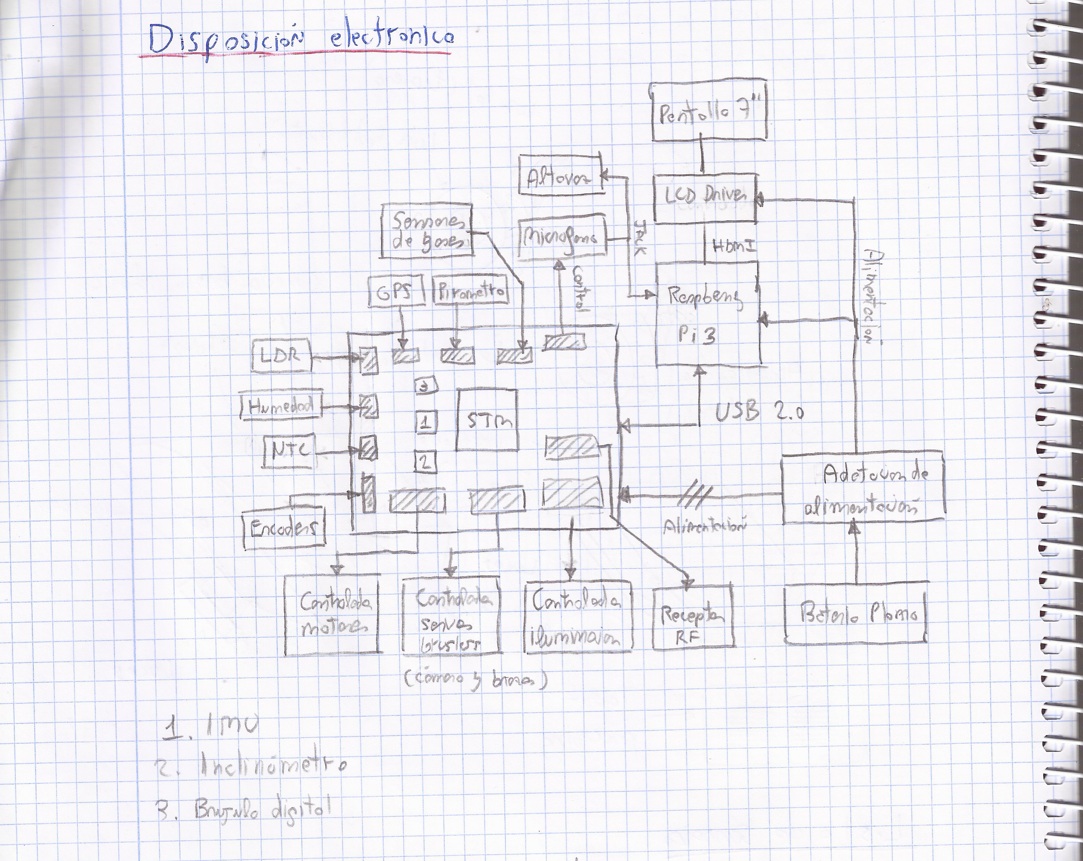 Disposición electronica
Pantalla 7"
Altavoz
LCD Driver
Sensores
de gases
Microfono
Jack
HDMI
Control
GPS
Pirometro
Raspberry
Pi 3
Alimentación
LDR
Humedad
NTC
3
1
2
STM
USB 2.0
Encoders
Alimentación
alimentación
Controlada
motores
Controlada
servos
brusless
Controlada
iluminacion
Receptor
RF
Bateria Plomo
(cámara y brazo)
1. IMU
2. Inclinómetro
3. Brujula digital